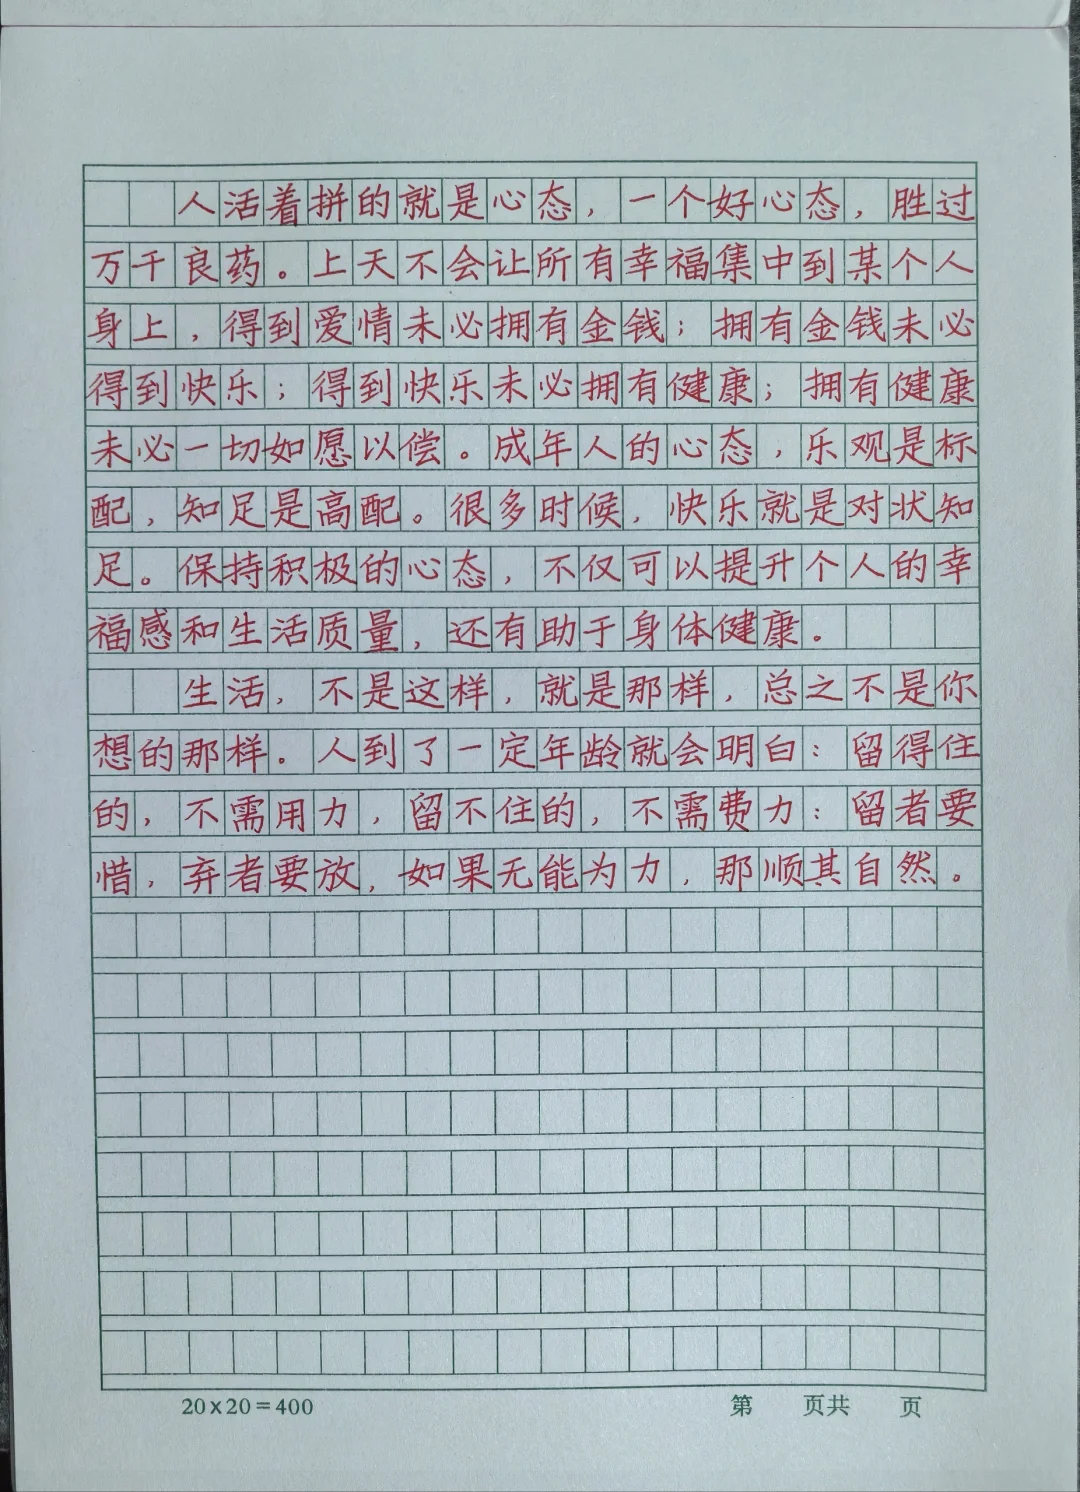 人活着拼的就是心态，一个好心态，胜过
万千良药。上天不会让所有幸福集中到某个人
身上，得到爱情未必拥有金钱；拥有金钱未必
得到快乐；得到快乐未必拥有健康；拥有健康
未必一切如愿以偿。成年人的心态，乐观是标
配，知足是高配。很多时候，快乐就是对状知
足。保持积极的心态，不仅可以提升个人的幸
福感和生活质量，还有助于身体健康。
生活，不是这样，就是那样，总之不是你
想的那样。人到了一定年龄就会明白：留得住
的，不需用力，留不住的，不需费力：留者要
惜，弃者要放，如果无能为力，那顺其自然。
20×20=400
第 页共 页